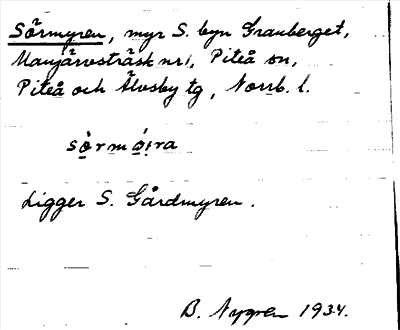 Sörmyren, myr S. byn Granberget,
Manjärvsträsk nr 1, Piteå sn,
Piteå och Älvsby tg, Norrb. l.
sö̀rmọ́ịra
Ligger S. Gårdmyren.
B. Nygren 1934.